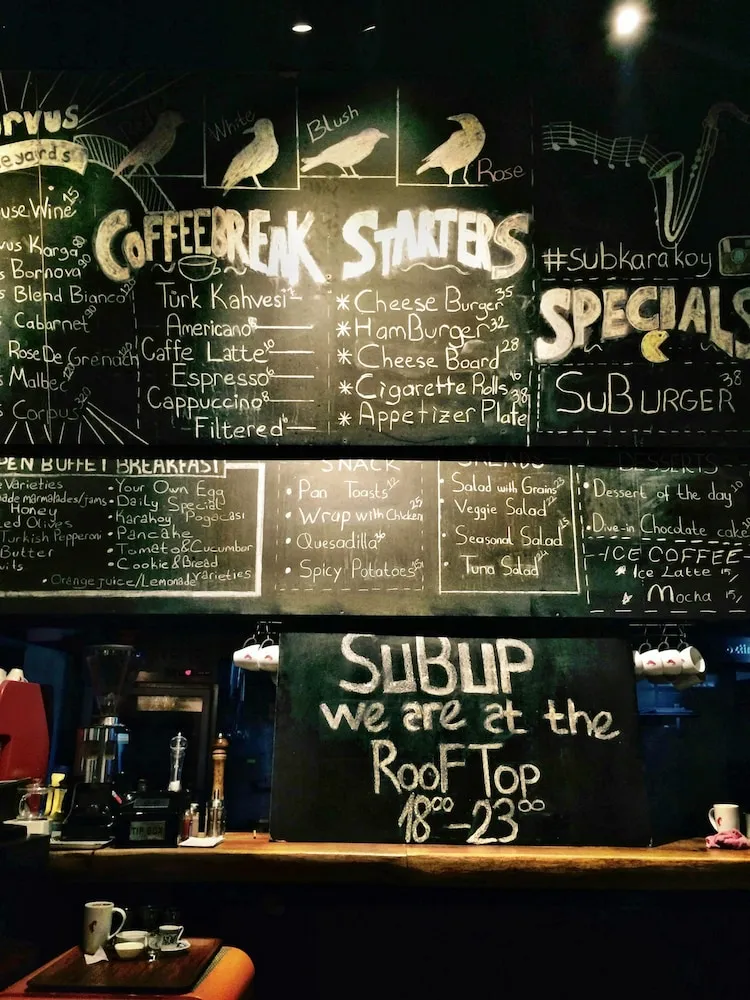 rvus
eyards
use Wine 15
vus Karga
s Bornova
s Blend Bianco
s Cabarnet
Rose De Grenach
s Malbec
s Corpus
White
Blush
Rose
COFFEEBREAK
Türk Kahvesi
Americano 8
Caffe Latte 10
Espresso 6
Cappuccino 8
Filtered 6
STARTERS
* Cheese Burger 35
* HamBurger 32
* Cheese Board 28
* Cigarette Rolls 16
* Appetizer Plate 38
#subkarakoy
SPECIALS
SUBURGER 38
PEN BUFFET BREAKFAST
e Varieties
ade marmalades/jams
Honey
led Olives
Turkish Pepperoni
Butter
uits
• Your Own Egg
• Daily Special
• Karakoy Pogacasi
• Pancake
• Tomato&Cucumbar
• Cookie&Bread varieties
• Orange juice/Lemonade
SNACK
• Pan Toasts 12
• Wrap with Chicken 25
• Quesadilla
• Spicy Potatoes 15
SALADS
• Salad with Grains 23
• Veggie Salad 22
• Seasonal Salad 15
• Tuna Salad 24
DESSERTS
• Dessert of the day 10
• Dive-in Chocolate cake
ICE COFFEE
Ice Latte 15/
Mocha 15/
SUBUP
we are at the
ROOFTOP
18⁰⁰-23⁰⁰
TIP BOX